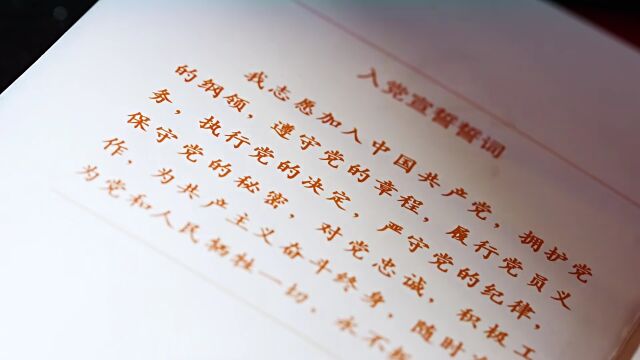 入党宣誓誓词
我志愿加入中国共产党，拥护党
的纲领，遵守党的章程，履行党员义
务，执行党的决定，严守党的纪律，
保守党的秘密，对党忠诚，积极工
作，为共产主义奋斗终身，随时
为党和人民牺牲一切，永不